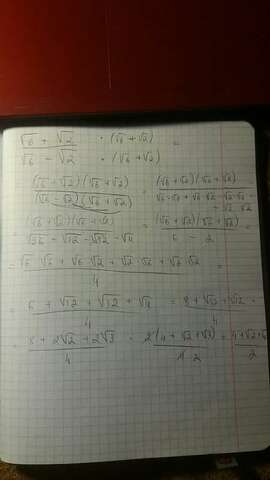 √6 + √2 · (√6 + √2) =
√6 - √2 · (√6 + √2)
(√6 + √2)(√6 + √2) = (√6 + √2)(√6 + √2)
(√6 - √2)(√6 + √2) √6·√6 + √6·√2 - √2·√6 -
- √2·√2
(√6 + √2)(√6 + √2) = (√6 + √2)(√6 + √2) =
√36 - √12 - √12 - √4 6 - 2
= √6·√6 + √6·√2 + √2·√6 + √2·√2 =
4
= 6 + √12 + √12 + √4 = 8 + √12 + √12 =
4 4
= 8 + 2√2 + 2√3 = 2(4 + √2 + √3) = 4 + √2 +
4 4 2 2